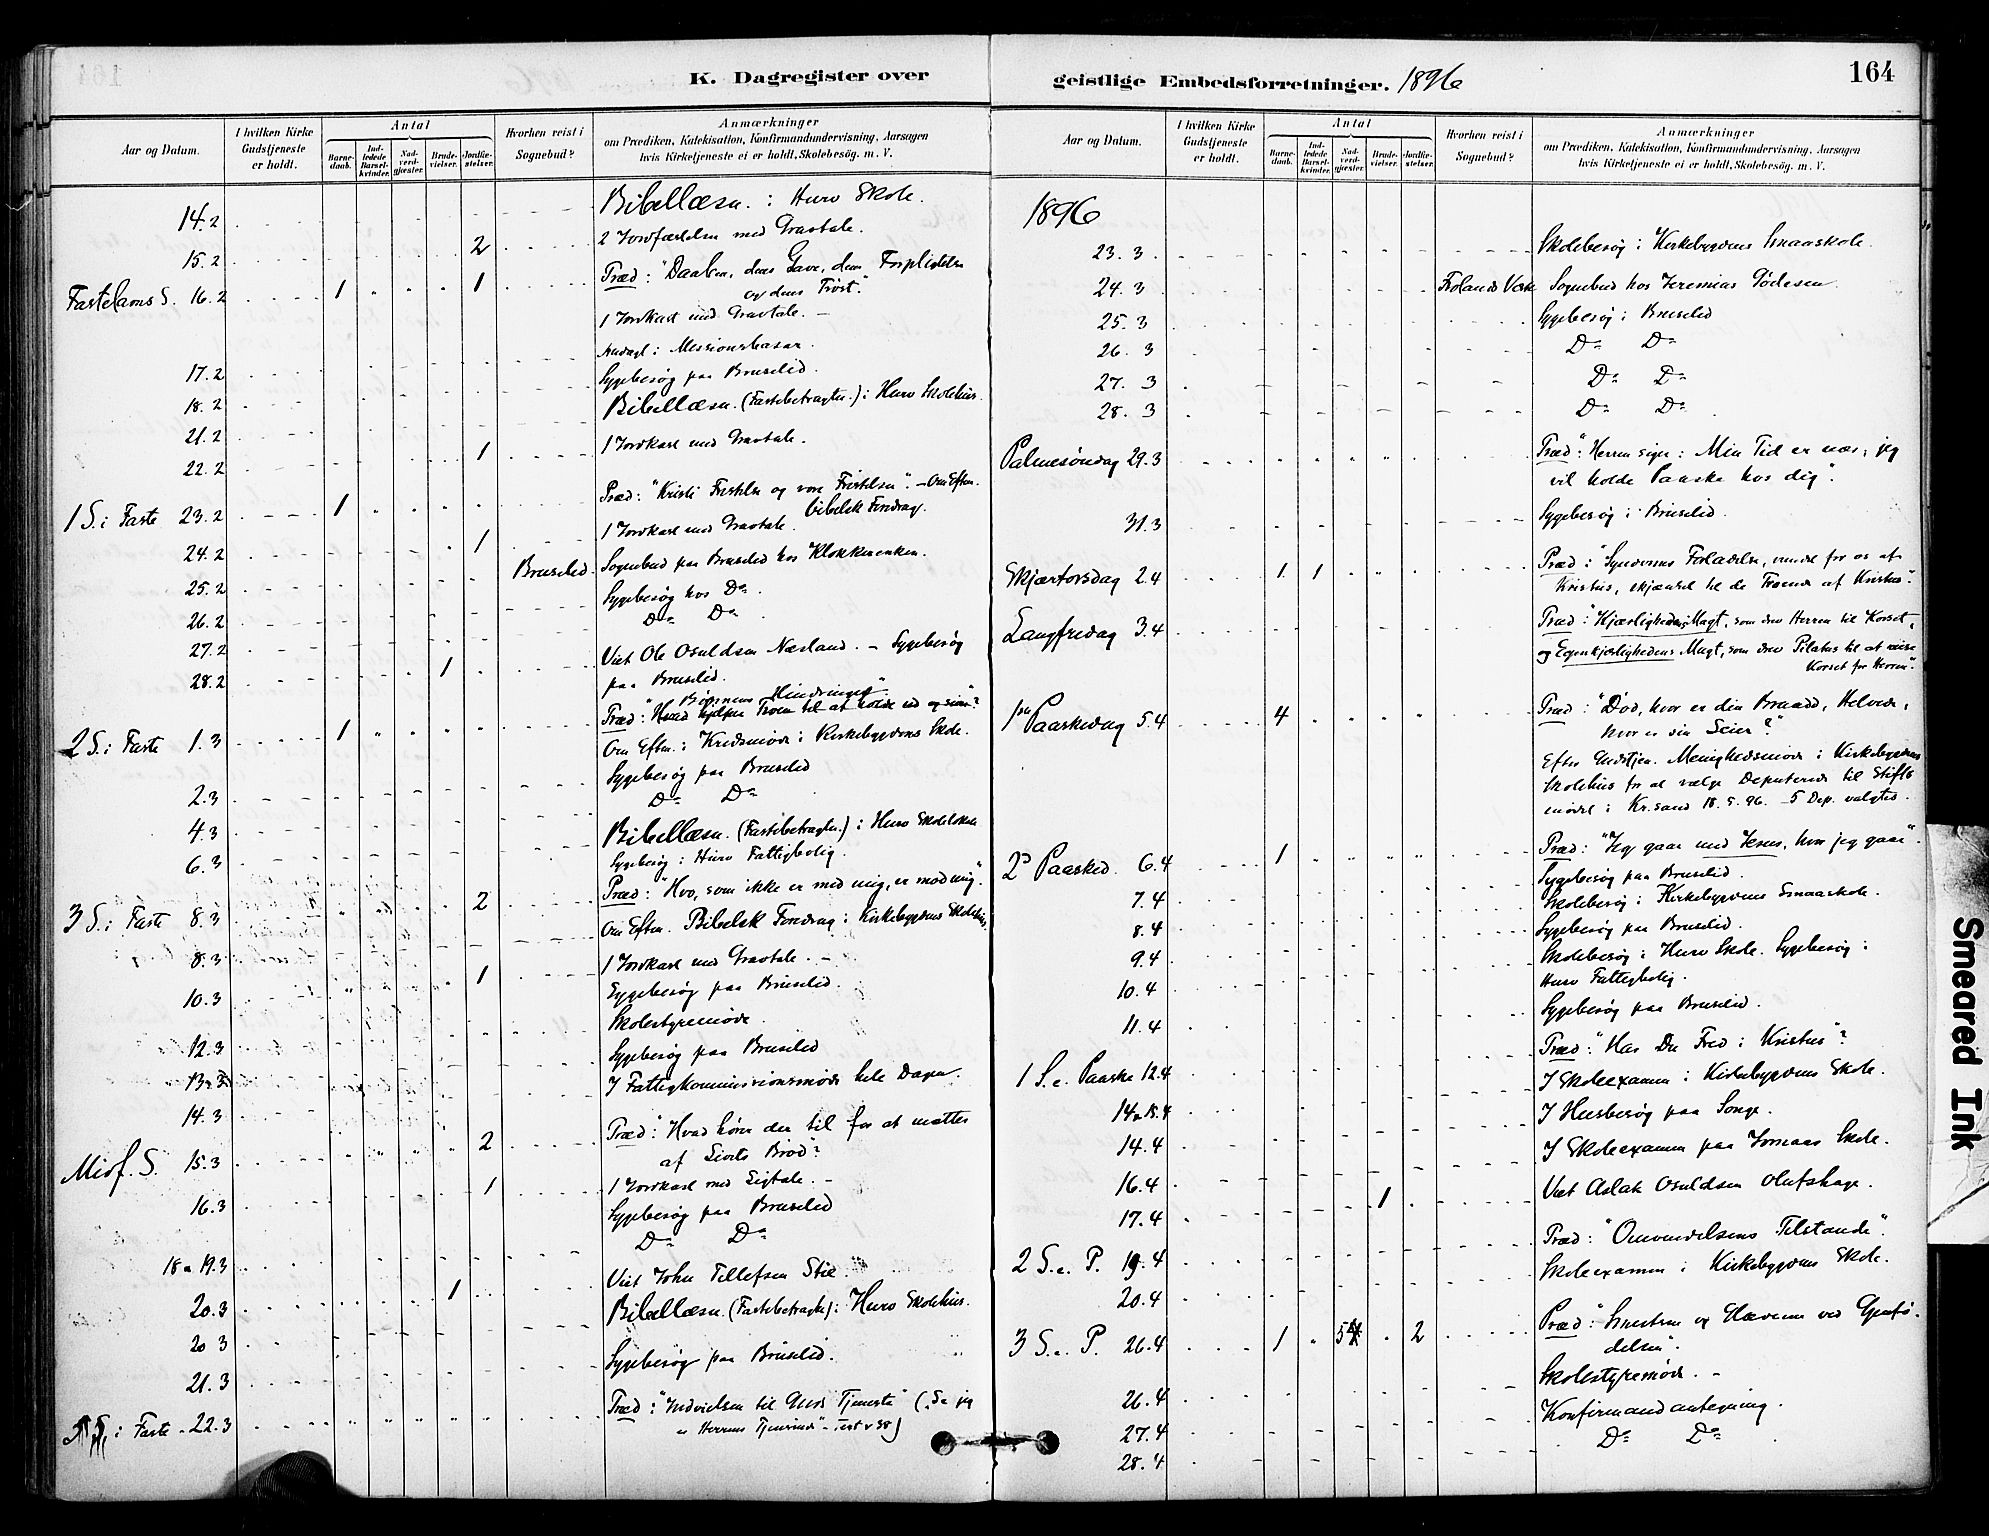 K. Dagregister over
Aar og Datum.
I hvilken Kirke Gudstjeneste er holdt.
Antal
Barne-daab.
Ind-ledede Barsel-kvinder.
Nad-verd-gjæster.
Brude-vielser.
Jordfæ-stelser.
Hvorhen reist i Sognebud?
Anmærkninger
om Prædiken, Katekisation, Konfirmandundervisning, Aarsagen
hvis Kirketjeneste ei er holdt, Skolebesøg. m. V.
14.2 Bibellæsn. i Hurv Skole.
15.2 2 2 Jordfæstelsen med Gravtale.
Fastelavns S. 16.2 1 1 Præd: "Daaben, dens Gave, dens Forpligtelse
og dens Trøst".
1 Jordkast med Gravtale. -
Andagt i Missionsbasar.
17.2 Sygebesøg paa Bruselid.
18.2 Bibellæsn. (Fastebetragtn.) i Hurv Skolehus.
21.2
22.2 1 1 Jordkast med Gravtale.
1 S. i Faste 23.2 1 Præd: "Kristi Fristelse og vore Fristelser". - Om Eftm.
bibelsk Foredrag.
24.2 1 1 Jordkast med Gravtale.
25.2 Bruselid. Sognebud paa Bruselid hos Klokkerenken.
26.2 Sygebesøg hos Do.
27.2 Do Do
28.2 1 Viet Ole Osuldsen Næsland. - Sygebesøg
paa Bruselid.
"Bønnens Hindringer".
2 S. i Faste 1.3 1 Præd: Hvad hjelper Troen til at holde ud og seire?
Om Eftm. i Kredsmøde i Kirkebygdens Skole.
2.3 Sygebesøg paa Bruselid
4.3 Do Do
6.3 Bibellæsn. (Fastebetragtn.) i Hurv Skolelokale
Sygebesøg i Hurv Fattigbolig.
3 S. i Faste 8.3 2 Præd: "Hvo, som ikke er med mig, er mod mig".
Om Eftm. Bibelsk Foredrag i Kirkebygdens Skolehus.
8.3 1 1 Jordkast med Gravtale. -
10.3 Sygebesøg paa Bruselid.
Skolestyremøde.
12.3 Sygebesøg paa Bruselid
13.3 I Fattigkommissionsmøde hele Dagen.
14.3
Midf. S. 15.3 2 Præd: "Hvad hører der til for at mættes
af Livets Brød"?
16.3 1 1 Jordkast med Ligtale. -
Sygebesøg paa Bruselid
18 a 19.3 Do Do
20.3 1 Viet John Tellefsen Stie.
20 3 Bibellæsn. (Fastebetragtn.) i Hurv Skolehus.
21.3 Sygebesøg paa Bruselid.
5 S. i Faste 22.3 Præd: "Indvielsen til Guds Tjeneste" ("Se jeg
er Herrens Tjenerinde" - Text v 38)
geistlige Embedsforretninger. 1896
164
Aar og Datum.
I hvilken Kirke Gudstjeneste er holdt.
Antal
Barne-daab.
Ind-ledede Barsel-kvinder.
Nad-verd-gjæster.
Brude-vielser.
Jordfæ-stelser.
Hvorhen reist i Sognebud?
Anmærkninger
om Prædiken, Katekisation, Konfirmandundervisning, Aarsagen
hvis Kirketjeneste ei er holdt, Skolebesøg. m. V.
1896
23. 3 Skolebesøg i Kirkebygdens Smaaskole.
24. 3 Frolands Værk Sognebud hos Jeremias Gödesen.
25. 3 Sygebesøg i Bruselid
26. 3 Do Do
27. 3 Do Do
28. 3 Do Do
Palmesöndag 29.3 Præd: "Herren siger: Min Tid er nær, jeg
vil holde Paaske hos dig".
31.3 Sygebesøg i Bruselid.
Skjærtorsdag 2.4 1 1 Præd: "Syndernes Forladelse, vundet for os af
Kristus, skjænket til de Troende af Kristus".
Langfredag 3.4 Præd: "Kjærlighedens Magt, som drev Herren til Korset,
og Egenkjærlighedens Magt, som drev Pilatus til at reise
Korset for Herren".
1ste Paaskedag 5.4 4 Præd: "Död, hvor er din Braadd, Helvede,
hvor er din Seier?"
Efter Gudstjen. Menighedsmøde i Kirkebygdens
Skolehus for at vælge Deputerede til Stifts
mødet i Kr.sand 18.5.96. 5 Dep. valgtes.
2d Paasked. 6.4 1 Præd: "Jeg gaar med Jesus, hvor jeg gaar".
7.4 Sygebesøg paa Bruselid.
Skolebesøg i Kirkebygdens Smaaskole.
8.4 Sygebesøg paa Bruselid.
9.4 Skolebesøg i Hurv Skole. Sygebesøg i
10.4 Hurv Fattigbolig.
11.4 Sygebesøg paa Bruselid.
1 S. e. Paaske 12.4 Præd: "Har Du Fred i Kristus"?
14 a 15.4 I Skoleexamen i Kirkebygdens Skole.
14.4 I Husbesøg paa Songe.
16.4 I Skoleexamen paa Jomaas Skole.
17.4 1 Viet Aslak Osuldsen Olufshage.
2 S. e. P. 19.4 Præd: "Omvendelsens Tilstande".
20.4 Skoleexamen i Kirkebygdens Skole.
3 S. e. P. 26.4 1 54 2 Præd: "Smerten og Hævnen ved Gjenfö-
delsen".
26.4 Skolestyremøde. -
27.4 Konfirmandantegning.
28.4 Do Do
Smeared Ink